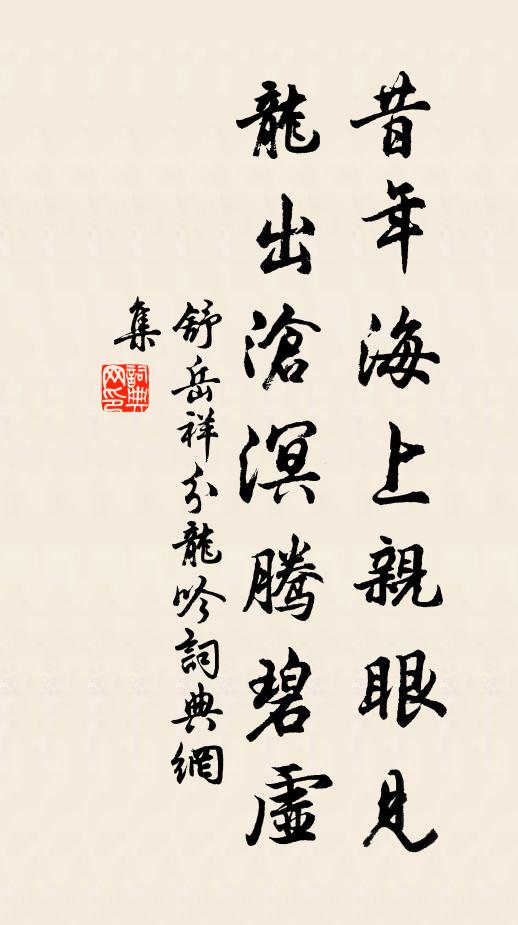 昔年海上親眼見
龍出滄溟騰碧虛
舒岳祥分龍吟詞典網
集
詞典网印